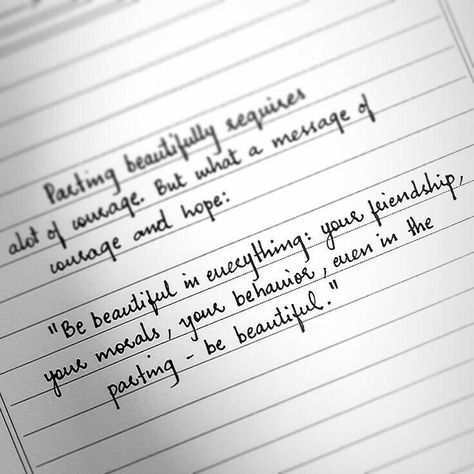 Parting beautifully requires
alot of courage. But what a message of
courage and hope:
"Be beautiful in everything: your friendship,
your morals, your behavior, even in the
parting - be beautiful."